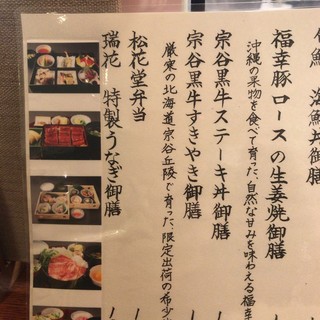 海鮮丼御膳
福幸豚ロースの生姜焼御膳
沖縄の果物を食べて育った、自然な甘みを味わえる福幸
宗谷黒牛ステーキ丼御膳
宗谷黒牛すきやき御膳
厳寒の北海道宗谷丘陵で育った、限定出荷の希少
松花堂弁当
瑞花 特製うなぎ御膳